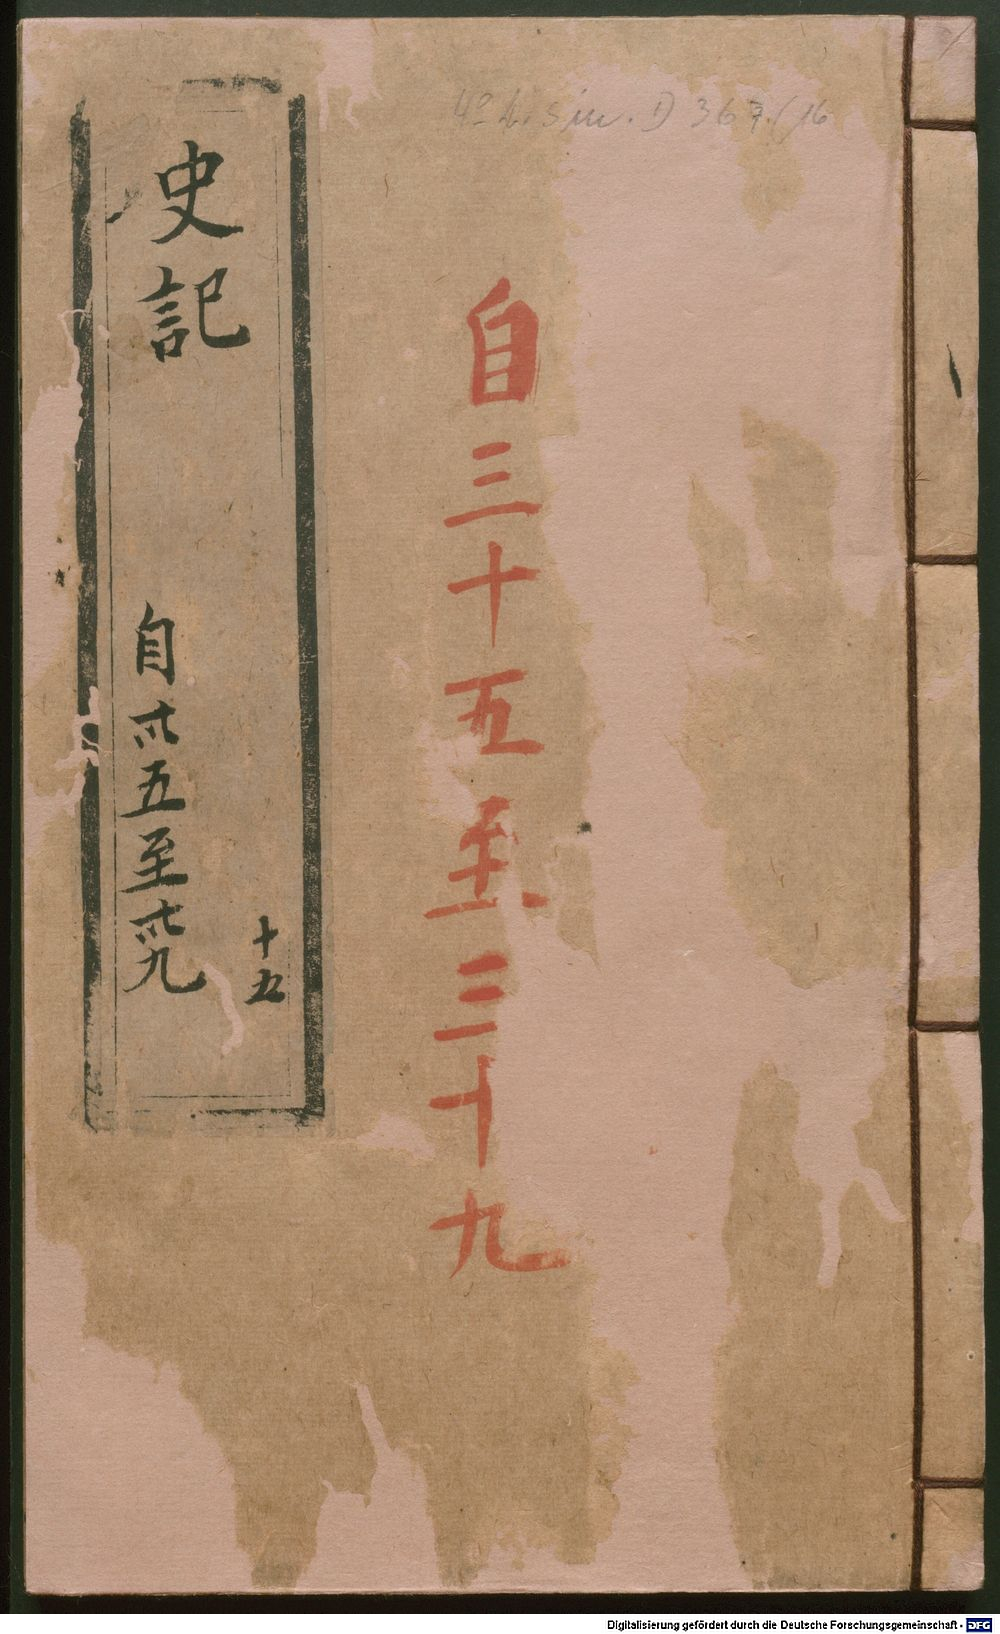 4° L. sin. D 367.(16
自三十五至三十九
史記
自卅五至卅九
十五
Digitalisierung gefördert durch die Deutsche Forschungsgemeinschaft - DFG